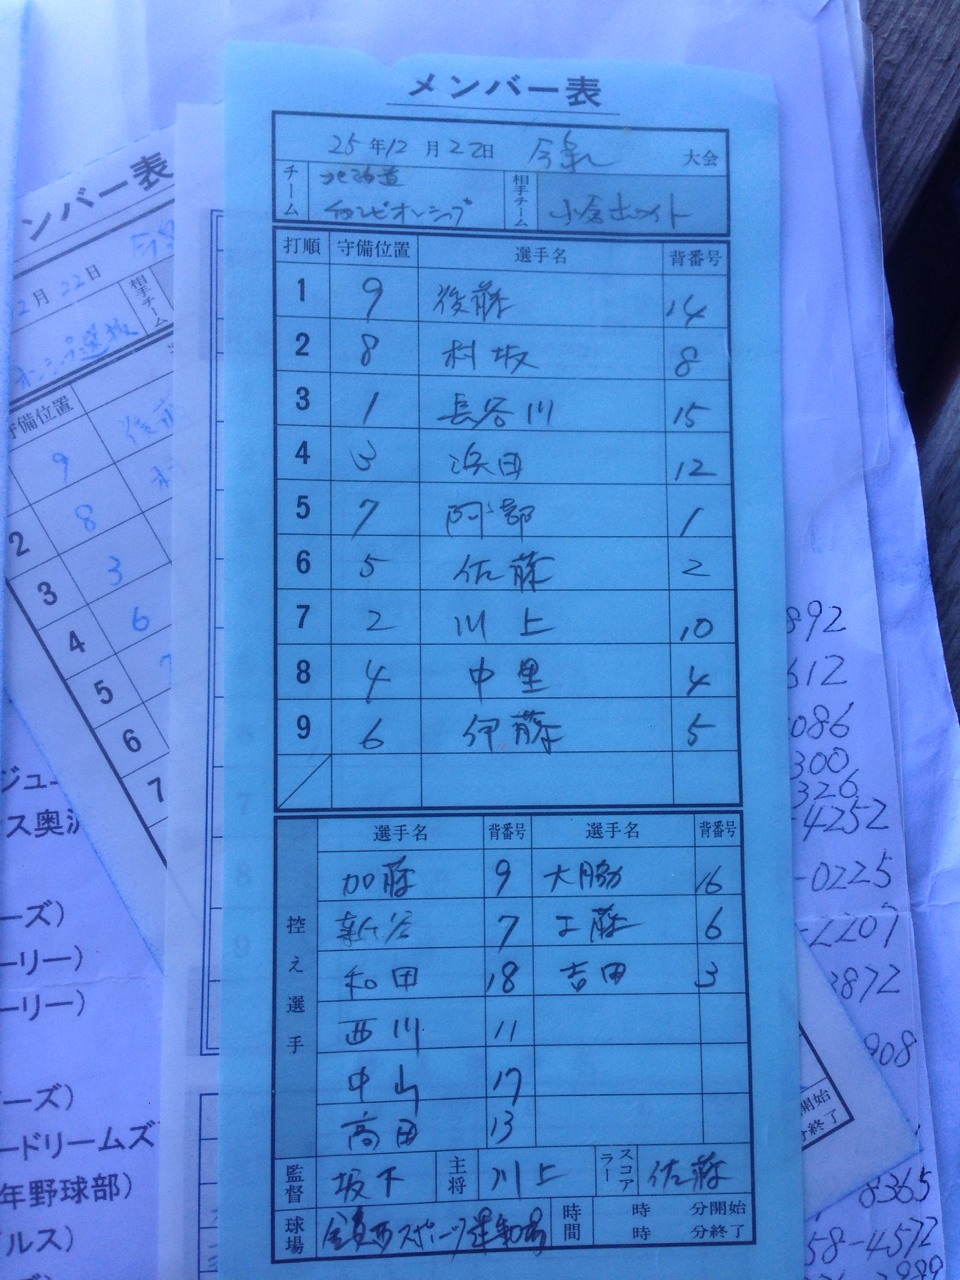 メンバー表
25年12月22日 大会
チーム 北海道チャンピオンシップ 相手チーム 小倉ホワイト
打順 守備位置 選手名 背番号
1 9 後藤 14
2 8 村坂 8
3 1 長谷川 15
4 3 浜田 12
5 7 阿部 1
6 5 佐藤 2
7 2 川上 10
8 4 中里 4
9 6 伊藤 5
控え選手
選手名 背番号 選手名 背番号
加藤 9 大脇 16
新谷 7 工藤 6
和田 18 吉田 3
西川 11
中山 17
高田 13
監督 坂下 主将 川上 スコアラー 佐藤
球場 鎮西スポーツ運動場 時間 時 分開始
時 分終了
ンバー表
2月22日
相手チーム
守備位置
9
2 8
3 3
4 6
5 7
6
7
ジュ
ス奥
ーズ)
ーリー)
ーリー)
ーズ)
ードリームズ
年野球部)
ルス)
892
612
086
300
326
-4252
-0225
-2207
3872
908
開始
分終了
8365
58-4572
989